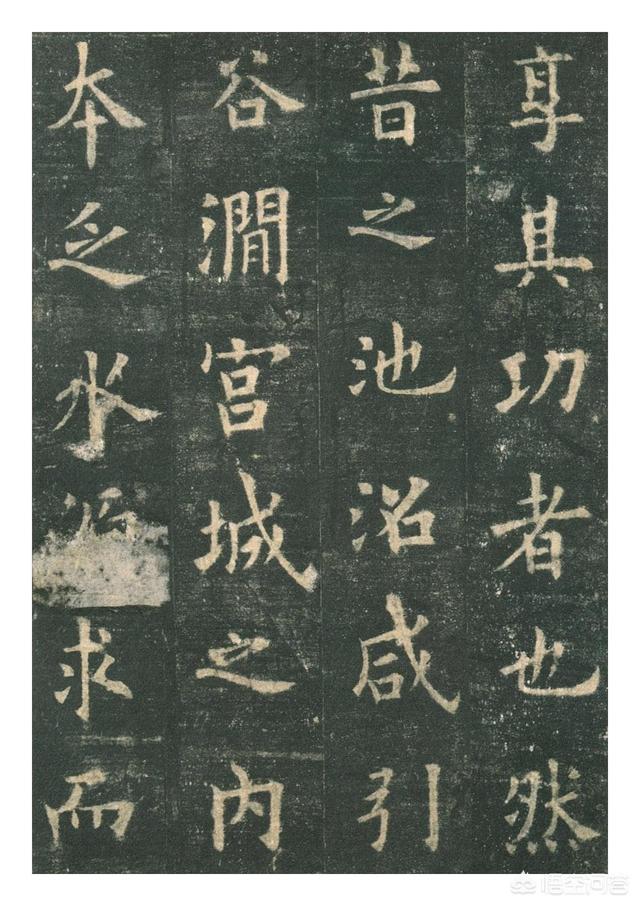 享其功者也然
昔之池沼咸引
谷澗宮城之内
本乏水源求而
悟空问答